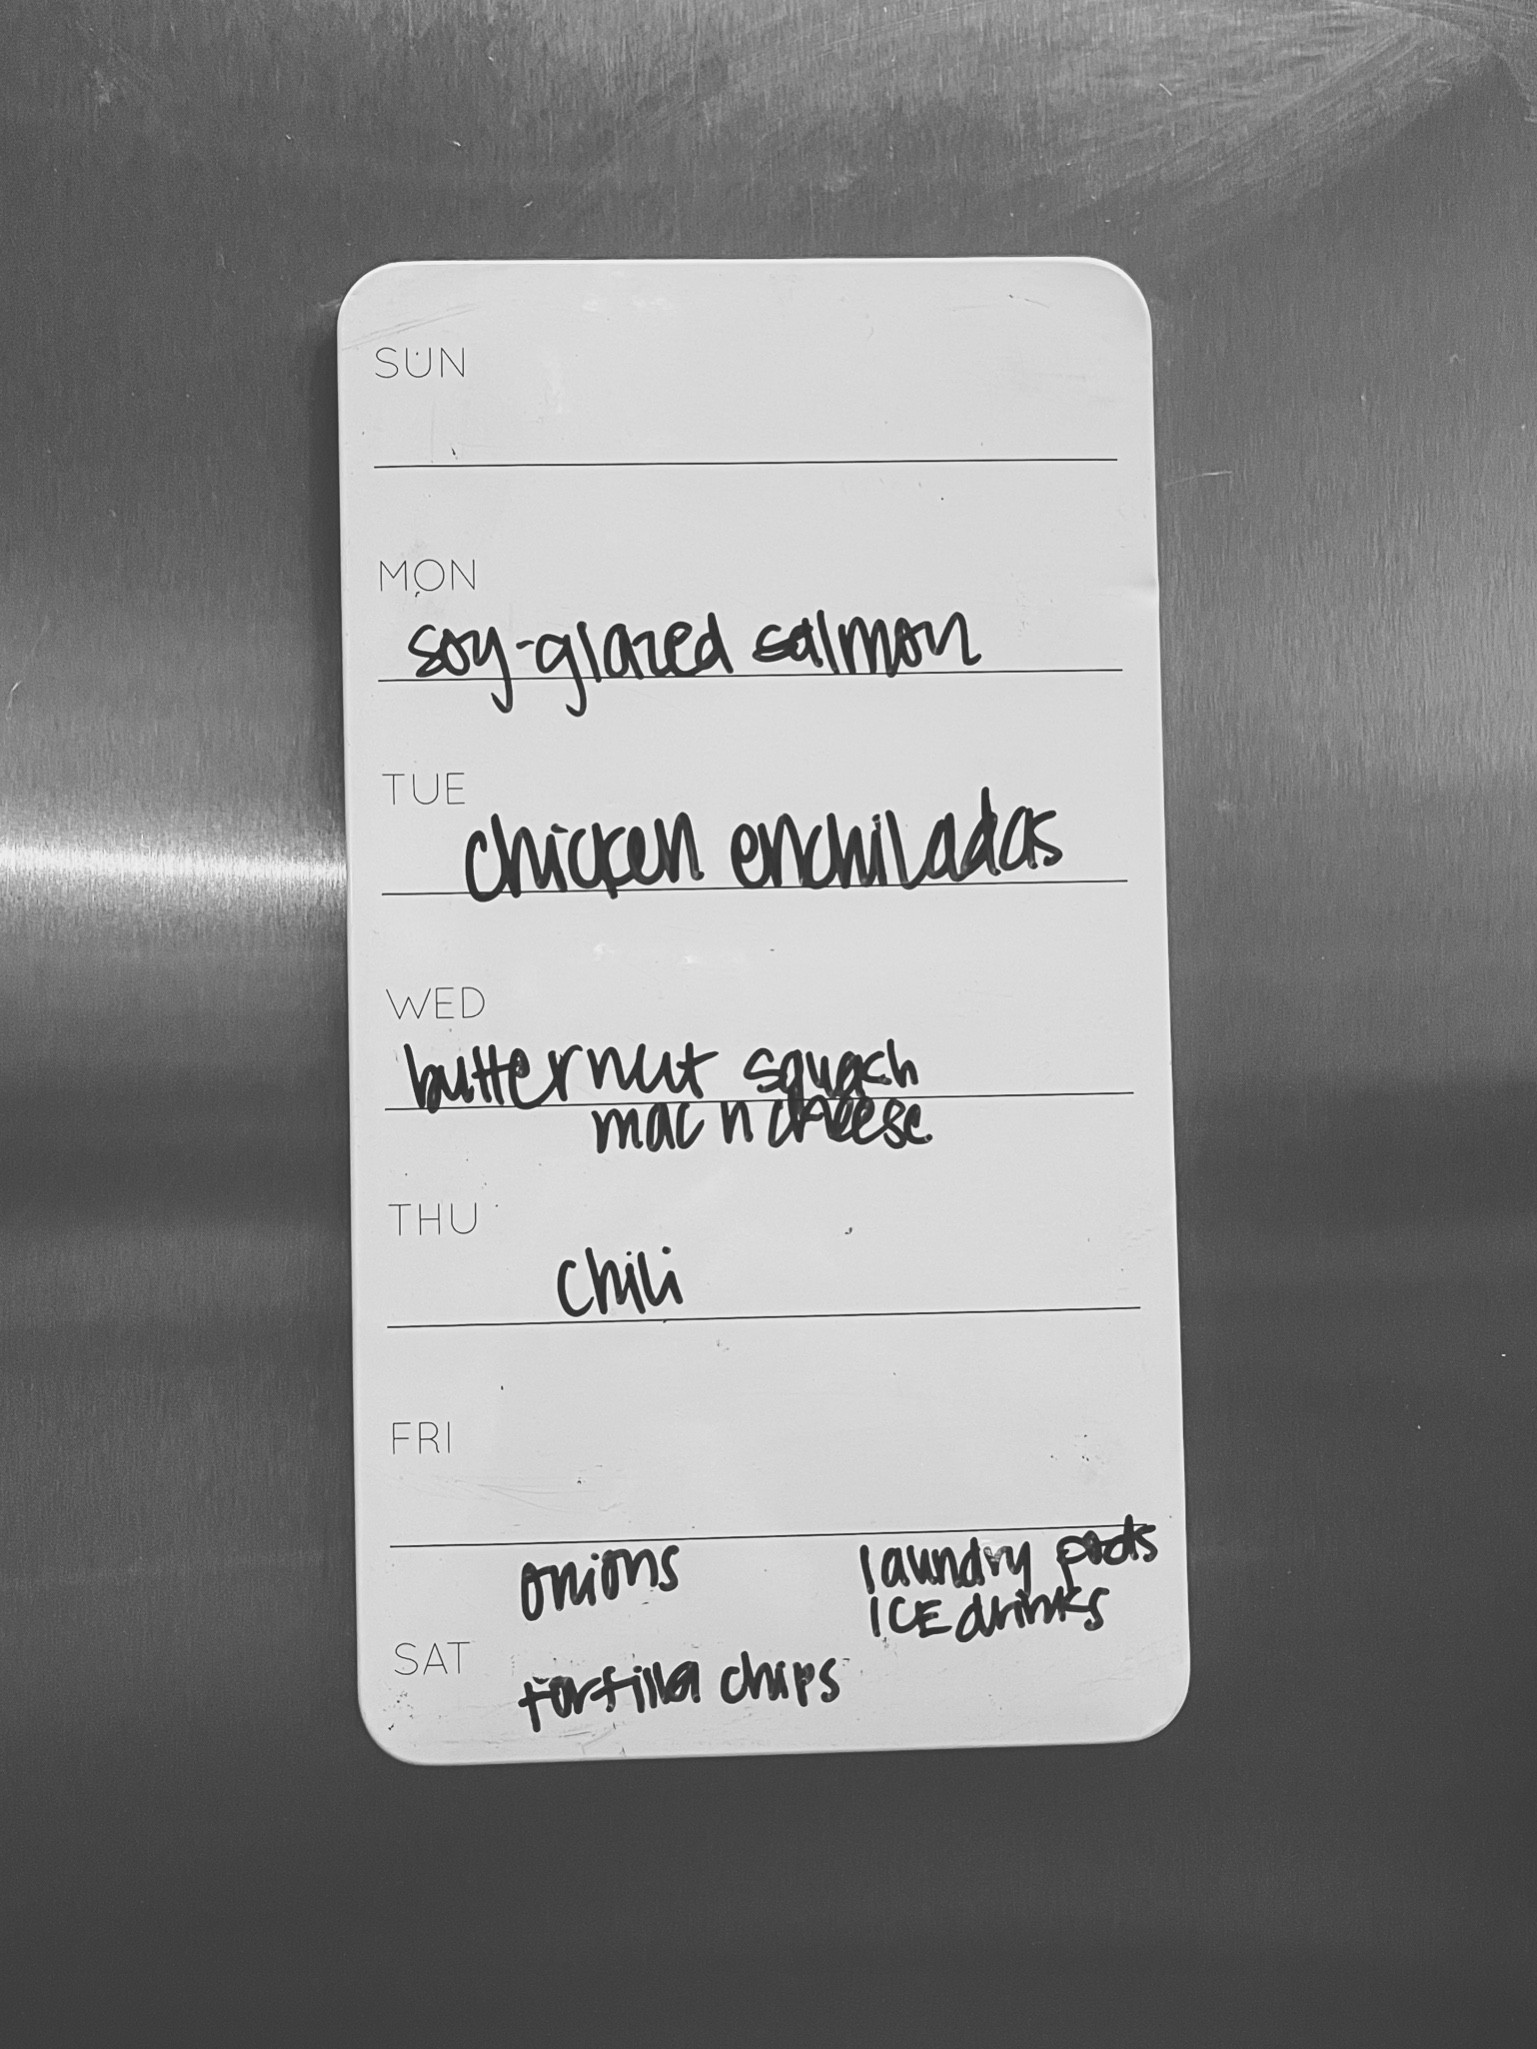 SUN
MON
soy-glazed salmon
TUE
chicken enchiladas
WED
butternut squash
mac n cheese
THU
chili
FRI
onions laundry pods
ICE drinks
SAT
tortilla chips